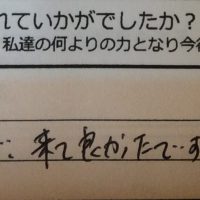 れていかがでしたか？
私達の何よりの力となり今後
来て良かったで…す